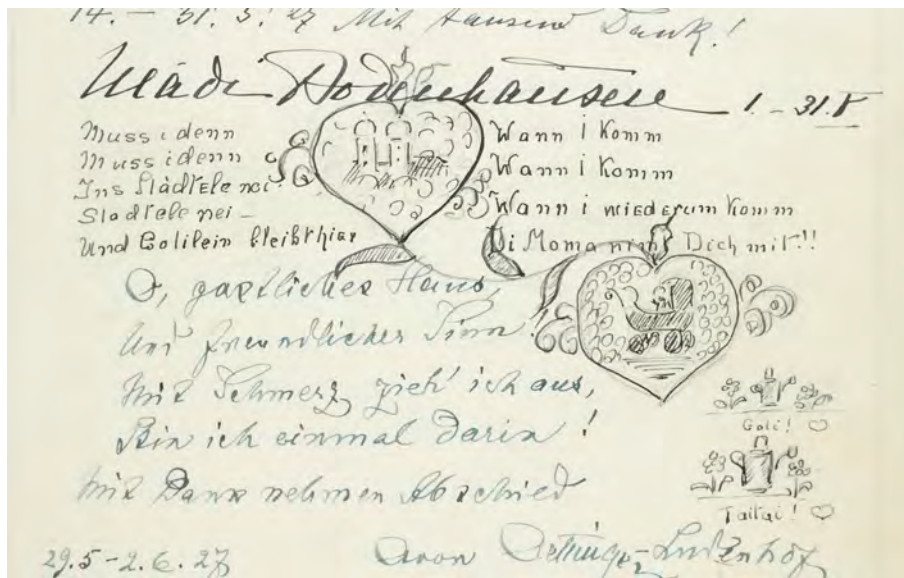 14. – 31. 3. 27 Mit tausend Dank!
Mädi Dodenhausen 1. – 31. V
Muss i denn
Muss i denn
Ins Städtele nei
Stadtele nei –
Und Golilein bleibt hier
Wann i komm
Wann i komm
Wann i wiederum komm
Di Moma nimt Dich mit!!
O, gastliches Haus,
Und freundlicher Sinn!
Mit Schmerz zieh' ich aus,
Bin ich einmal darin!
Mit Dank nehmen Abschied
Goli!
Taitai!
29.5 – 2. 6. 27